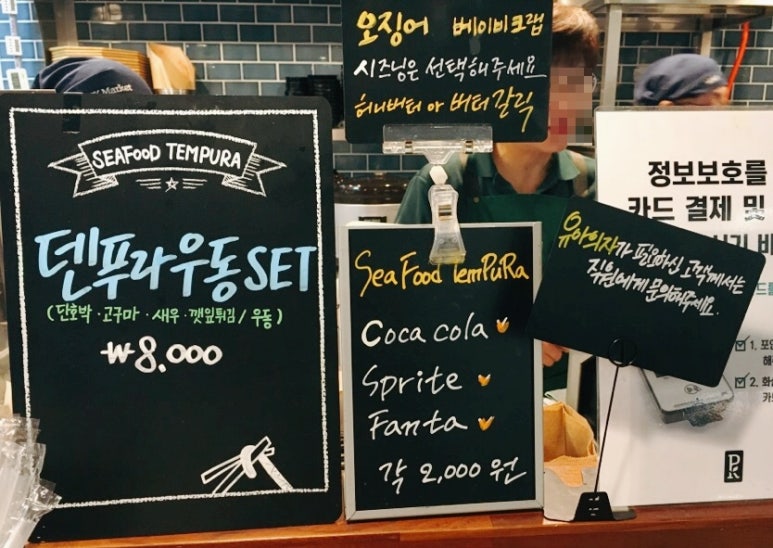 SEAFOOD TEMPURA
덴푸라우동 SET
(단호박·고구마·새우·깻잎튀김/우동)
₩8,000
오징어 베이비크랩
시즈닝은 선택해주세요
허니버터 or 버터갈릭
SeaFood TemPuRa
Coca cola
Sprite
Fanta
각 2,000원
유아의자가 필요하신 고객께서는
직원에게 문의해주세요.
정보보호를
카드 결제 및
1. 포
2. 화
카
Market